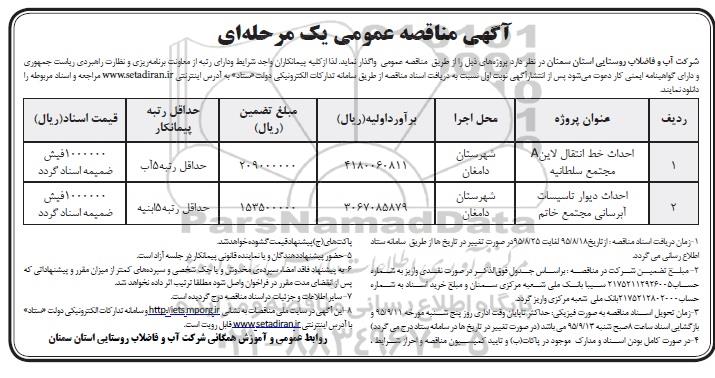 آگهی مناقصه عمومی یک مرحله‌ای
شرکت آب و فاضلاب روستایی استان سمنان در نظر دارد پروژه‌های ذیل را از طریق مناقصه عمومی واگذار نماید. لذا از کلیه پیمانکاران واجد شرایط و دارای رتبه از معاونت برنامه‌ریزی و نظارت راهبردی ریاست جمهوری
و دارای گواهینامه ایمنی کار دعوت می‌شود پس از انتشار آگهی نوبت اول نسبت به دریافت اسناد مناقصه از طریق سامانه تدارکات الکترونیکی دولت«ستاد» به آدرس اینترنتی www.setadiran.ir مراجعه و اسناد مربوطه را
دانلود نمایند.
ردیف عنوان پروژه محل اجرا برآورداولیه(ریال) مبلغ تضمین (ریال) حداقل رتبه پیمانکار قیمت اسناد(ریال)
۱ احداث خط انتقال لاینA مجتمع سلطانیه شهرستان دامغان ۴۱۸۰۰۶۰۸۱۱ ۲۰۹۰۰۰۰۰۰ حداقل رتبه۵آب ۱۰۰۰۰۰۰فیش ضمیمه اسناد گردد
۲ احداث دیوار تاسیسات آبرسانی مجتمع خاتم شهرستان دامغان ۳۰۶۷۰۸۵۸۷۹ ۱۵۳۵۰۰۰۰۰ حداقل رتبه۵ابنیه ۱۰۰۰۰۰۰فیش ضمیمه اسناد گردد
۱-زمان دریافت اسناد مناقصه : از تاریخ۹۵/۸/۱۸ لغایت ۹۵/۸/۲۵ در صورت تغییر در تاریخ ها از طریق سامانه ستاد
اطلاع رسانی می گردد.
۲-مبلغ تضمین شرکت در مناقصه : براساس جدول فوق‌الذکر در صورت نقدی واریز به شماره
حساب۲۱۷۵۲۱۱۲۹۲۶۰۰۵ سیبا بانک ملی شعبه مرکزی سمنان و مبلغ خرید اسناد به شماره
حساب۲۱۷۵۲۱۲۸۰۲۰۰۰بانک ملی شعبه مرکزی واریز گردد.
۳-زمان تحویل اسناد مناقصه به صورت فیزیکی: حداکثر تاپایان وقت اداری روز پنج شنبه مورخه ۹۵/۹/۱۱ و
بازگشایی اسناد ساعت ۸صبح شنبه ۹۵/۹/۱۳ می باشد (در صورت تغییر در تاریخ ها در سامانه ستاد درج می گردد)
۴-در صورت کامل بودن اسناد و مدارک موجود در پاکات(ب) و تایید کمیسیون مناقصه و احراز شرایط .
پاکت‌های(ج) پیشنهاد قیمت گشوده خواهد شد.
۵-حضور پیشنهاددهندگان و یا نماینده قانونی پیمانکار در جلسه آزاد است.
۶-به پیشنهاد فاقد امضا، سپرده‌ی مخدوش و یا چک شخصی و سپرده‌های کمتر از میزان مقرر و پیشنهاداتی که
پس از انقضای مدت مقرر در فراخوان واصل شود مطلقا ترتیب اثر داده نخواهد شد.
۷-سایر اطلاعات و جزئیات در اسناد مناقصه درج گردیده است.
۸-این آگهی در سایت ملی مناقصات به نشانی http://iets.mporg.ir و سامانه تدارکات الکترونیکی دولت «ستاد»
با آدرس اینترنتی www.setadiran.ir قابل رویت است.
روابط عمومی و آموزش همگانی شرکت آب و فاضلاب روستایی استان سمنان
ParsNamadData